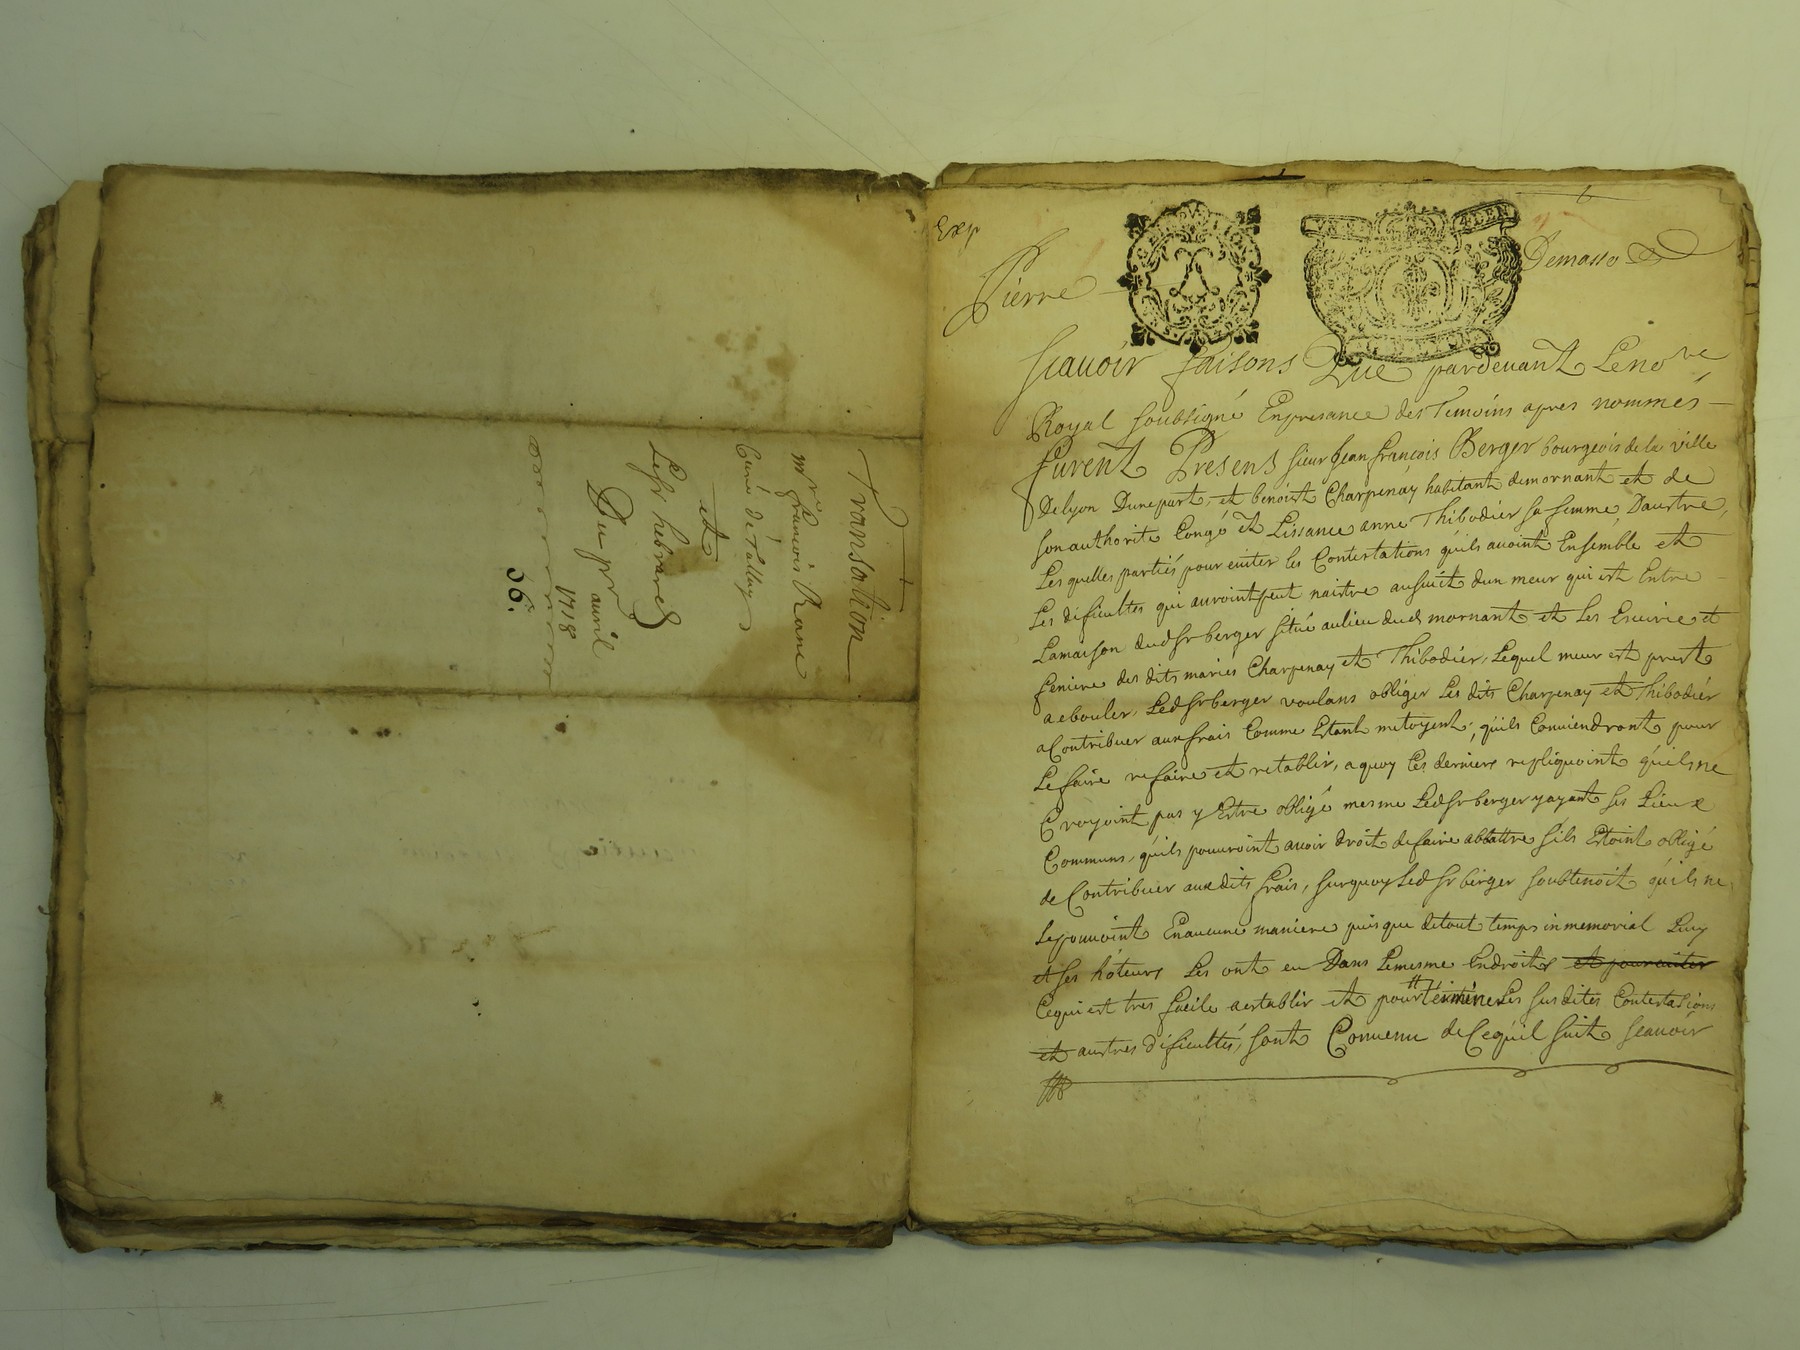 Transaction
mre francois Rane
Curé de Talluy
et
Les hebrard
Du pr auril
1718
56.
Exp
Pierre Demasso
Scauoir faisons Que pardeuant Leno re
Royal soubsigné Enpresance des Temoins apres nommés
furent Presens sieur Jean francois Berger bourgeois de la ville
Delyon Dunepart, et benoist Charpenay habitant demornant et de
son authorite Congé et Lissance anne Thibodier sa femme, Daustre,
Les quelles partiés pour euiter les Contestations quils auoint Ensemble et
Les dificultes qui auroint peut naistre ausuit dun meur qui est Entre
Lamaison dud sr berger situé aulieu dud mornant et Les Escuirie et
feniere des dits mariés Charpenay et Thibodier, Lequel meur est prest
aebouler, Led Sr berger voulans obliger Les dits Charpenay et Thibodiér
aContribuer aux frais Comme Estant mitoyent, quils Conuiendront pour
Le faire refaire et retablir, aquoy Ces derniers repliquoint quils ne
Croyoint pas y Estre obligé mesme Led Sr berger yayant ses Lieux
Communs, quils pouuroint auoir droit de faire abbattre sils Estoint obligé
de Contribuer aux dits frais, surquoy Led Sr berger soubtenoit quils ne
Lepouuoint Enaucune maniere puisque detout temps in memorial Luy
et ses hoteurs Les ont eu Dans Lemesme Endroits et pour euiter
Cequi est tres facile aestablir et pour terminer Les susdites Contestasions
et austres dificultés, sont Conuenu de Cequil suit scauoir